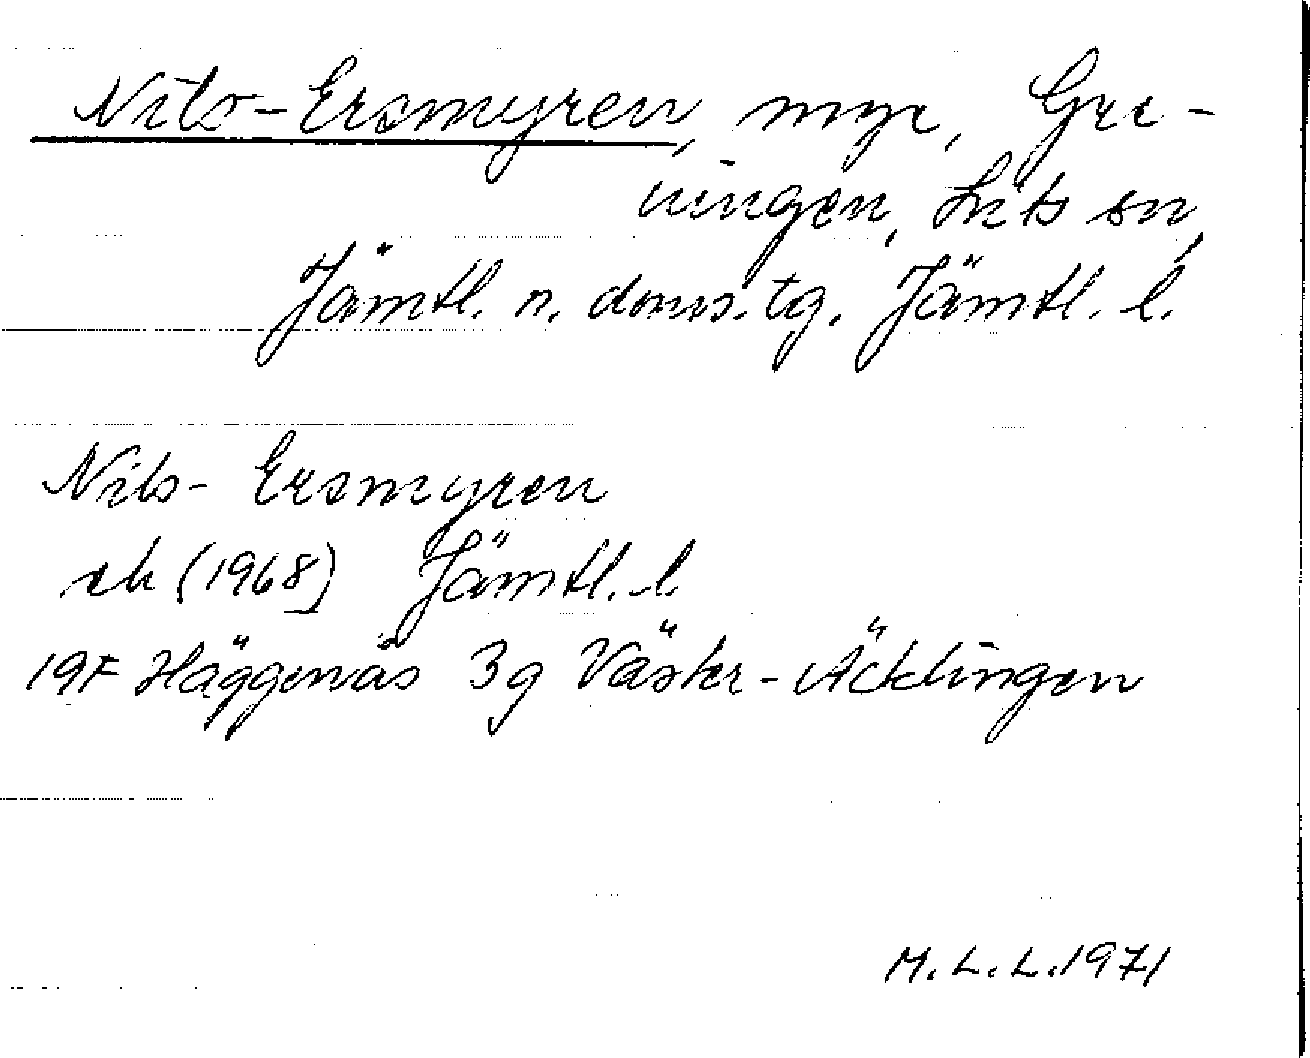 Nils-Ersmyren, myr, Gri-
ningen, Lits sn,
Jämtl. n. doms. tg. Jämtl. l.
Nils- Ersmyren
ek (1968) Jämtl. l.
19F Häggenås 3g Väster-Äcklingen
M. L. L. 1971